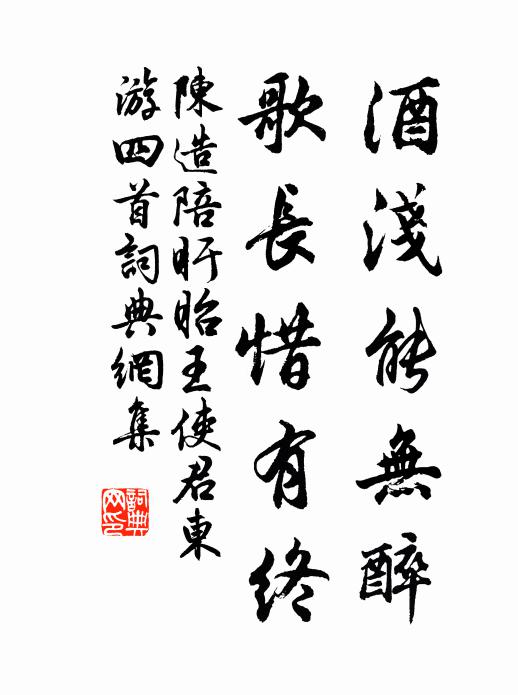 酒淺能無醉
歌長惜有終
陳造陪盱眙王使君東
游四首詞典網集
詞典網印